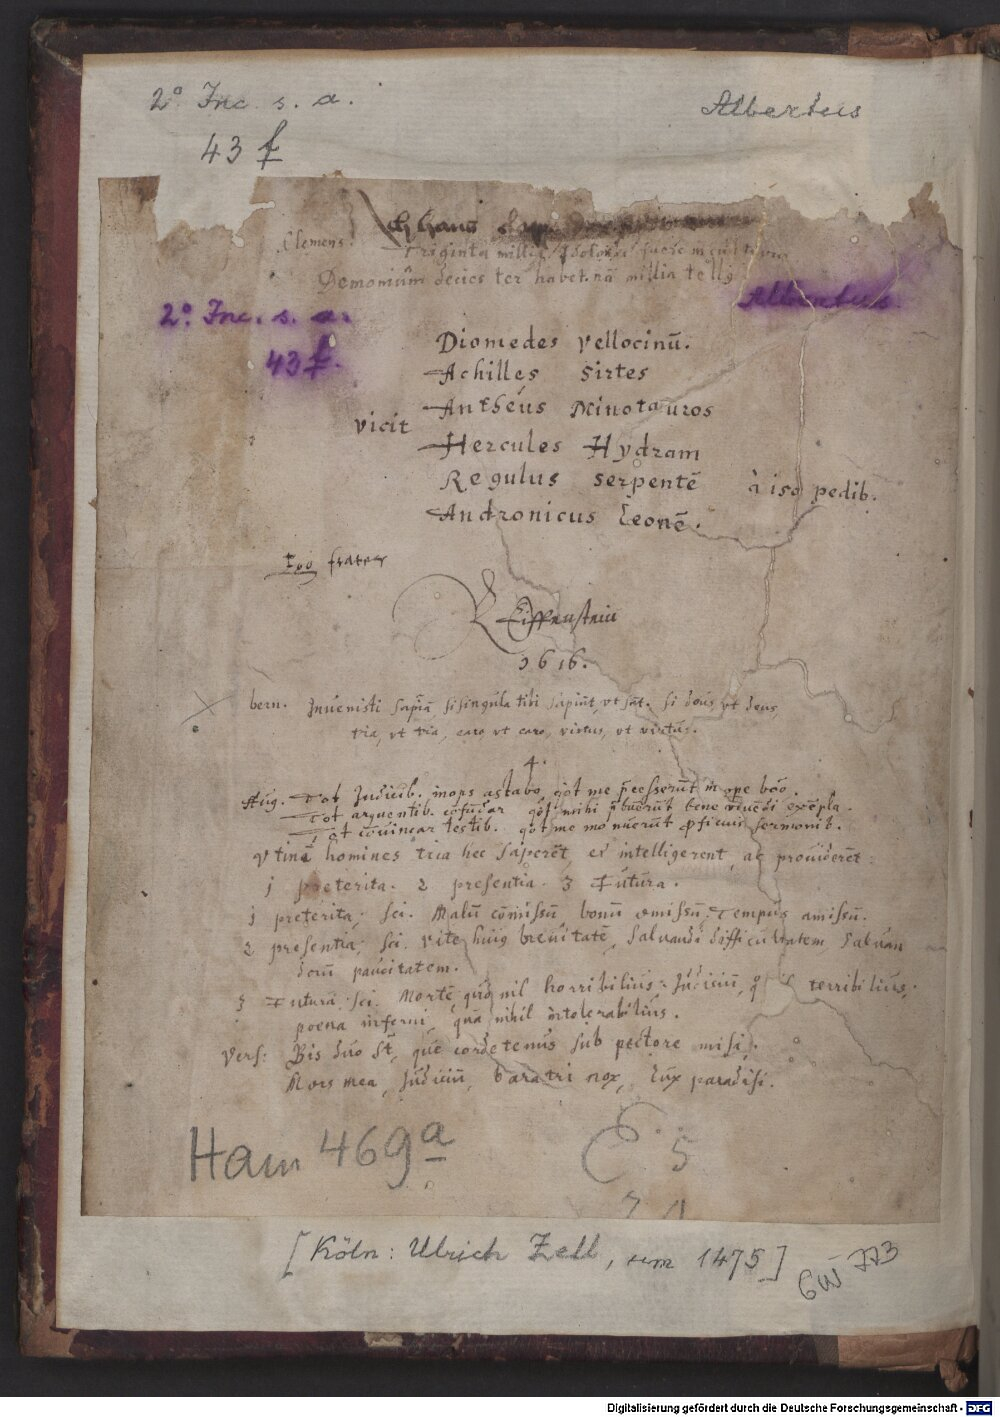 2° Inc. s. a.
Albertus
43 f
Clemens.
Triginta millia
Demoniũ decies ter habet.nã millia tellꝰ
2° Inc. s. a.
Albertus.
43 f.
Diomedes vellocinũ.
Achilles Sirtes
Antheus Minotauros
vicit
Hercules Hydram
Regulus serpentẽ
à iso pedib.
Andronicus Leonẽ.
Ego frater
1616.
bern. Invenisti sapiã, si singula tibi sapiũt, vt sũt. si deus, vt deus,
via, vt via, caro vt caro, virtus, vt virtus.
4.
Aug. Tot Judicib. inops astabo, qot me p̃cesserũt in ope boõ.
Tot arguentib. cõfũdar qot mihi p̃buerũt bene vivẽdi exẽpla.
Tot cõvincar testib. qot me monuerũt proficuis sermonib.
Vtinã homines tria hec saperẽt, et intelligerent, ac providerẽt:
1 preterita. 2 presentia. 3 Futura.
1 preterita; sci. Malũ cõmissũ, bonũ omissũ, Tempus amissũ.
2 presentia; sci. vite huiꝰ brevitatẽ, Salvandi difficultatem, Salvan
dorũ paucitatem.
3 Futura; sci. Mortẽ, quã nil horribilius: Judiciũ, q̃ terribilius;
poena inferni, quã nihil intolerabilius.
Vers: Bis duo sũt, que corde tenus sub pectore misi.
Mors mea, Judiciũ, baratri nox, Lux paradisi.
Hain 469a
C 5
[Köln: Ulrich Zell, um 1475]
GW 773
Digitalisierung gefördert durch die Deutsche Forschungsgemeinschaft - DFG